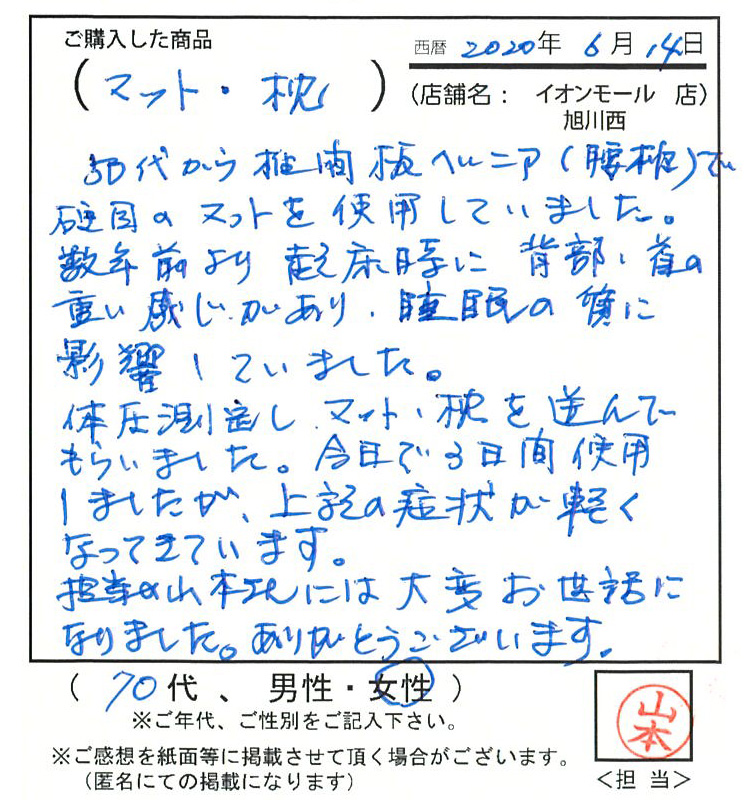 ご購入した商品
西暦 2020年 6月 14日
(マット・枕)
(店舗名： イオンモール 店)
旭川西
50代から椎間板ヘルニア(腰椎)で
硬目のマットを使用していました。
数年前より起床時に背部、首の
重い感じがあり、睡眠の質に
影響していました。
体圧測定し、マット・枕を選んで
もらいました。今日で3日間使用
しましたが、上記の症状が軽く
なってきています。
担当の山本さんには大変お世話に
なりました。ありがとうございます。
(70代、男性・女性)
※ご年代、ご性別をご記入下さい。
※ご感想を紙面等に掲載させて頂く場合がございます。
(匿名にての掲載になります)
山本
＜担当＞